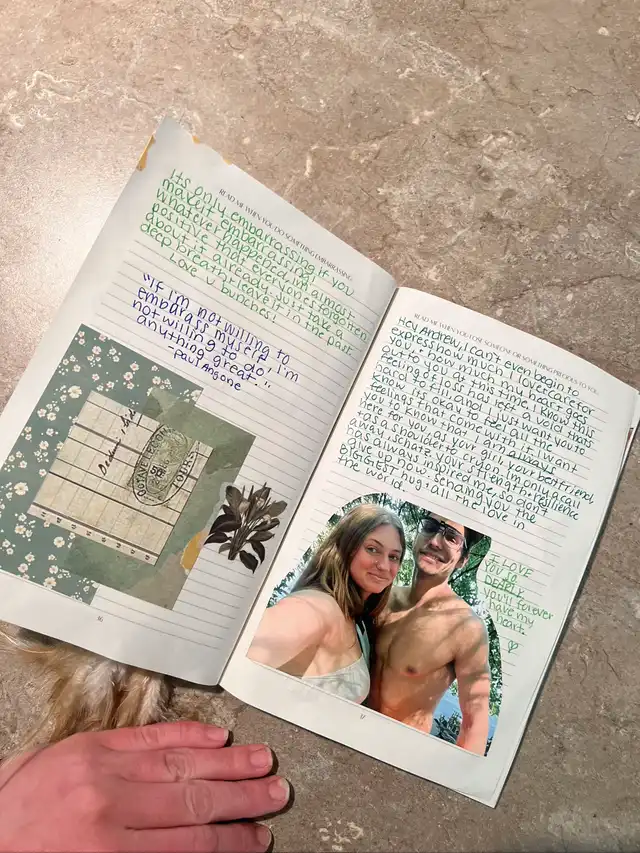 READ ME WHEN YOU DO SOMETHING EMBARRASSING
Its only embarrassing if you
make it embarrassing.
whatever happened im almost
positive that everyone forgot
about it already. Just take a
deep breath + leave it in the past
Love u bunches!
"If I'm not willing to
embarass myself, I'm
not willing to do
anything great..."
-Paul Angone
16
READ ME WHEN YOU LOSE SOMEONE OR SOMETHING PRECIOUS TO YOU
Hey Andrew, I can't even begin to
express how much I love + care for
you + know that my heart goes
out to you at this time. I know this
feeling of loss has left a void thats
hard to fill + I just want you to
know its okay to feel all the
feelings that come with it. I want
you to know that I am always
here for you as your girl, your bestfriend,
as a shoulder to cry on, im only a call
away schatz. your strength + resilience
has always inspired me, so dont
give up now. sending you the
BIGGEST hug + all the love in
the world.
I LOVE
You so
DEARLY
you'll forever
have my
heart.
17